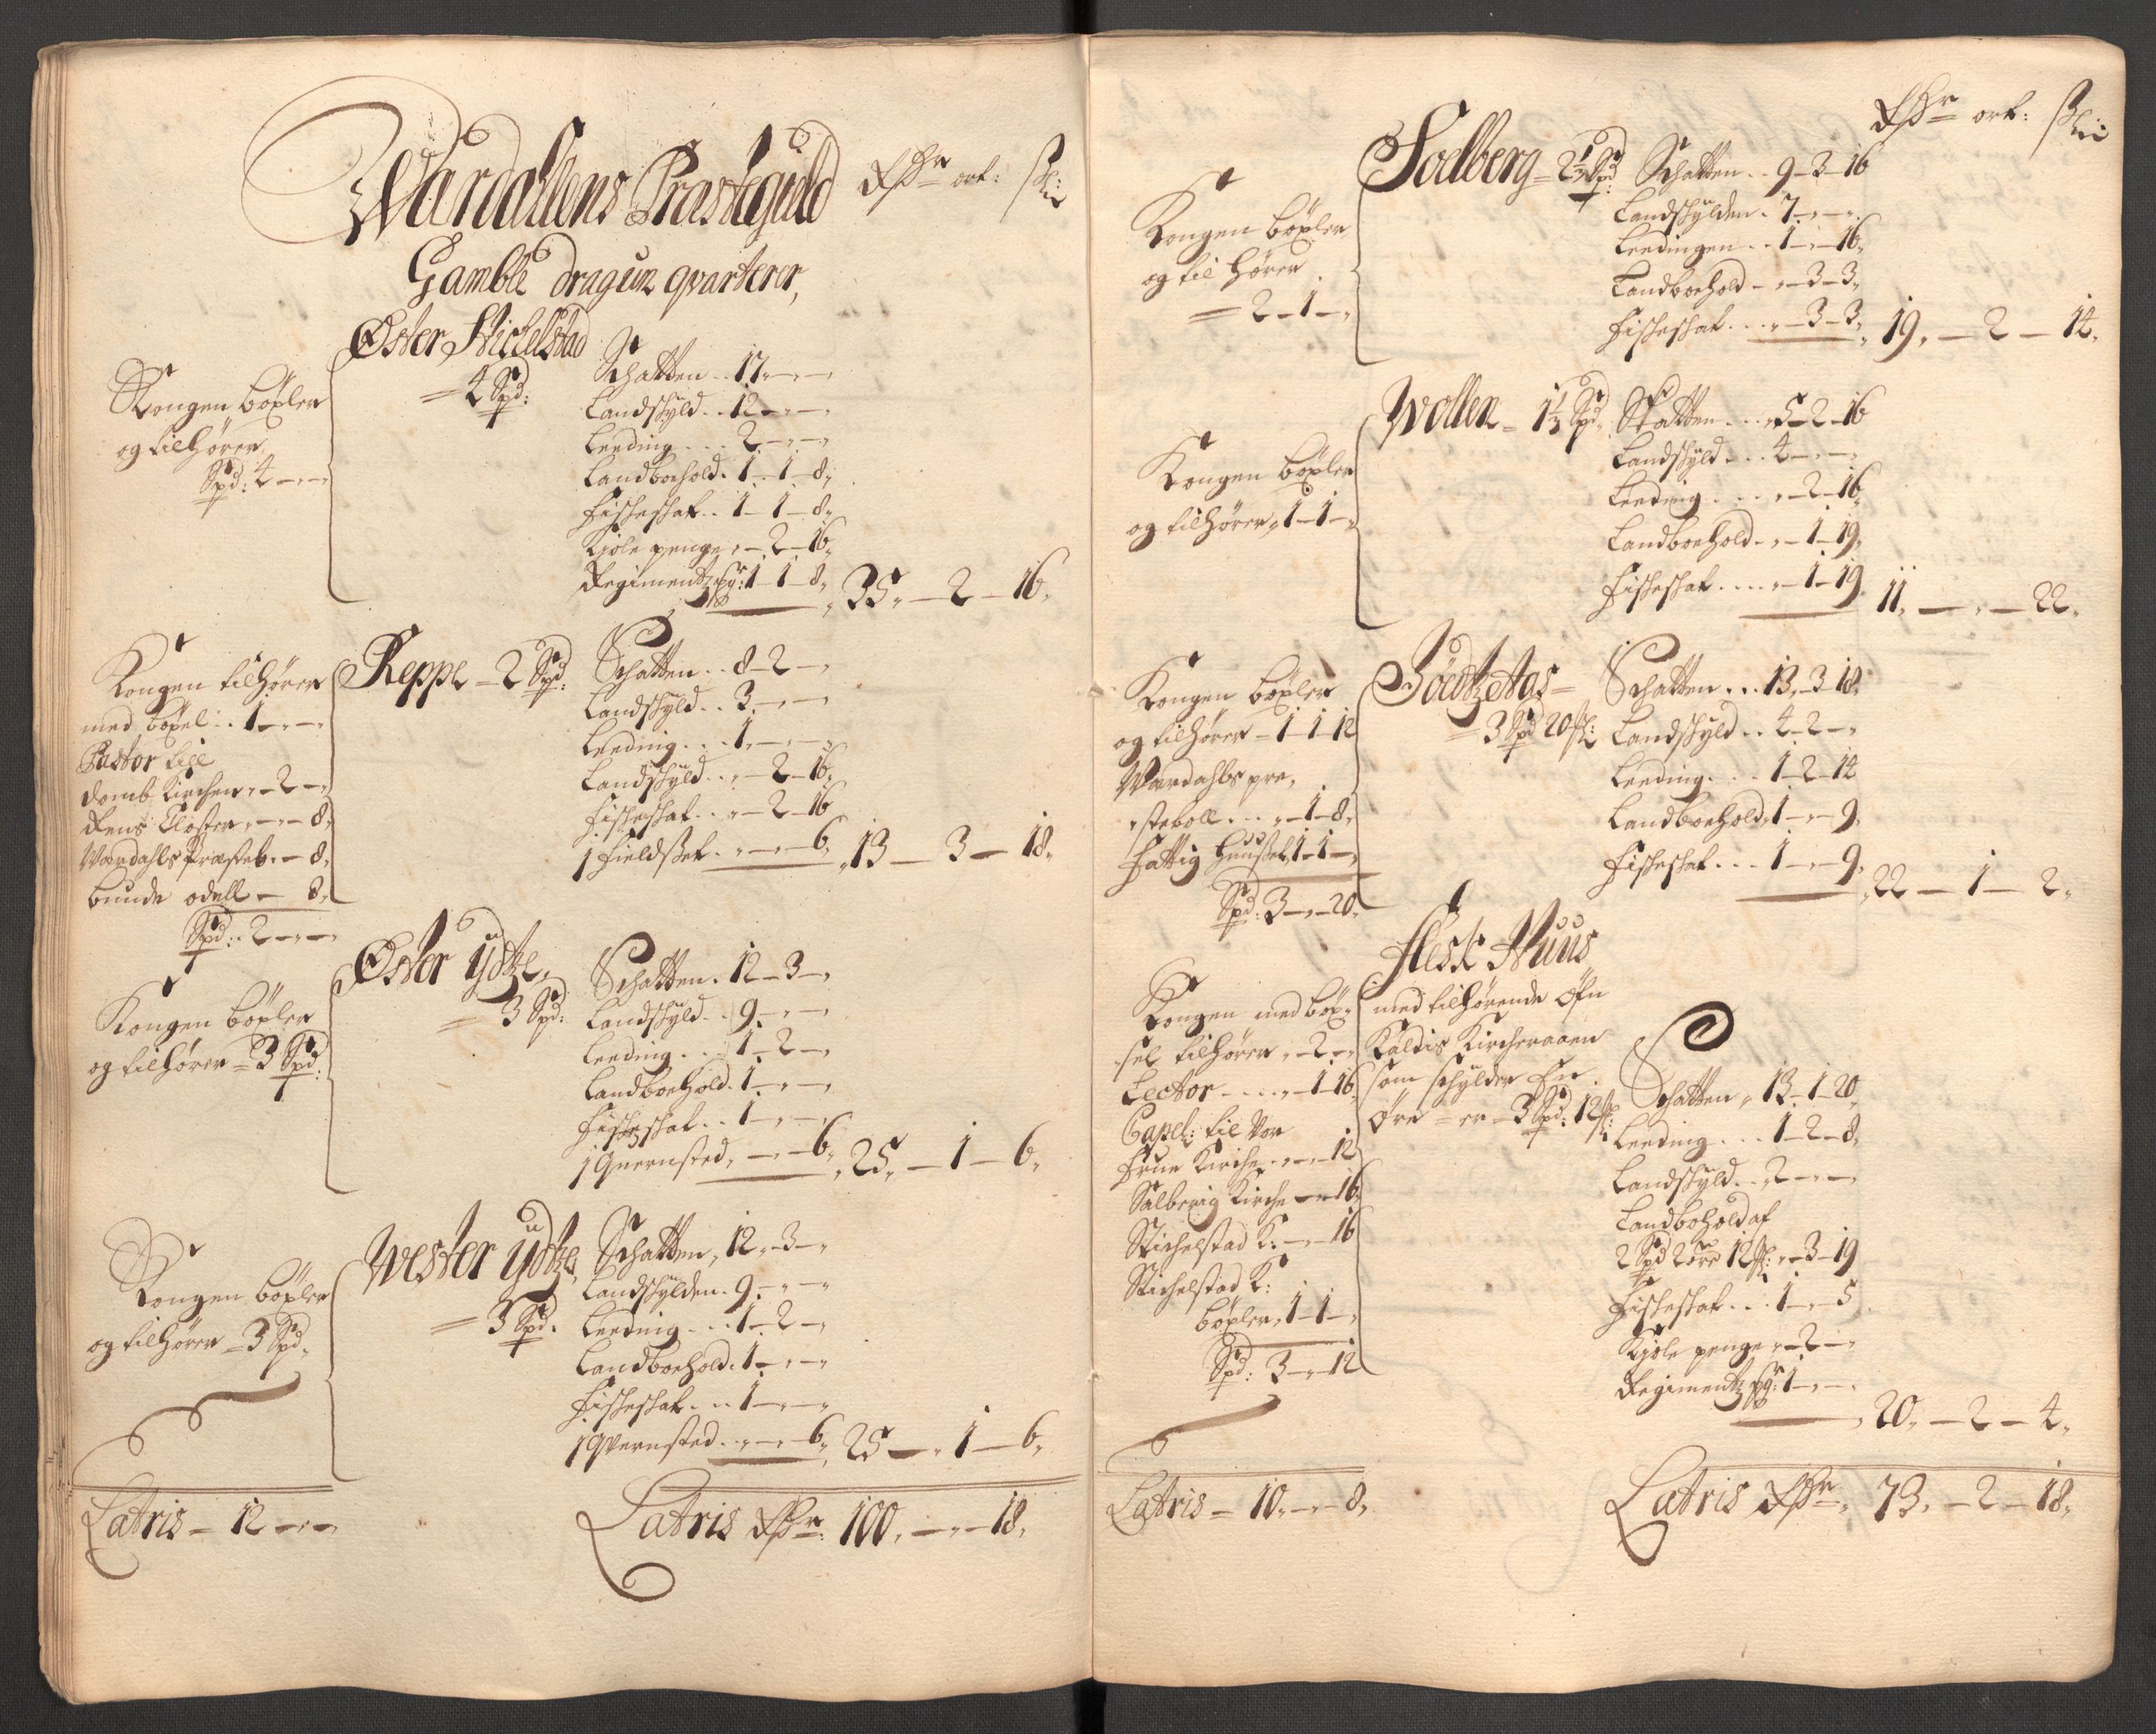 Wardahlens Præstegield Rdr ort: sk:
Gamble dragun qvarterer,
Øster Stichelstad
= 4 Spd:
Kongen böxler
og tilhører
Spd: 4 — " — "
Schatten .. 17 — " — "
Landskyld .. 12 — " — "
Leeding ... 2 — " — "
Landboehold . 1 — 1 — 8,
Fiskeskat .. 1 — 1 — 8,
Kiøle penge " — 2 — 16,
Regimentz : 1 — 1 — 8, 35, — 2 — 16,
Reppe = 2 Spd:
Kongen tilhører
med böxel .. 1 — " — "
Pastor till
domb Kirchen " — 2 — "
Rens Closter " — " — 8,
Wardahls Præsteb. — 8,
bunde odell — 8,
Spd: . 2 — " — "
Schatten .. 8 — 2 — "
Landskyld .. 3 — " — "
Leeding ... 1 — " — "
Landskyld .. " — 2 — 16,
Fiskeskat .. " — 2 — 16
1 Fieldsset . " — " — 6, 13 — 3 — 18,
Øster ydtze,
= 3 Spd:
Kongen böxler
og tilhører = 3 Spd:
Schatten . 12 — 3 — "
Landskyld .. 9 — " — "
Leeding ... 1 — 2 — "
Landboehold . 1 — " — "
Fiskeskat .. 1 — " — "
1 Qvernsted, — " — 6, 25, — 1 — 6,
Wester ydtze,
= 3 Spd.
Kongen böxler
og tilhører = 3 Spd,
Schatten, 12, — 3 — "
Landskylden . 9 — " — "
Leeding ... 1 — 2 — "
Landboehold . 1 — " — "
Fiskeskat ... 1 — " — "
1 Qvernsted .. " — " — 6, 25 — " 1 — 6,
Latris — 12 — " — "
Latris Rdr: 100, — " — 18,
Rdr ort: sk:
Soelberg = 2 1/3 Spd:
Kongen böxler
og til hører
= 2 — 1 — "
Schatten .. 9 — 3 — 16
Landskylden . 7 — " — "
Leedingen .. 1 — " — 16,
Landboehold — " — 3 — 3,
Fiskeskat ... " — 3 — 3, 19, — 2 — 14,
Wollen = 1 1/3 Spd,
Kongen böxler
og tilhører, 1 — 1 — "
Skatten ... 5 — 2 — 16
Landskyld ... 4 — " — "
Leeding .... " — 2 — 16,
Landboehold — " — 1 — 19,
Fiskeskat .... " — 1 — 19, 11, — " — 22,
Söedtzetas =
= 3 Spd 20 :
Kongen böxler
og tilhører — 1 — 1 — 12
Wardahls pre,
steboll ... " — 1 — 8,
Fattig huuset, 1 — 1 — "
Spd: 3 — " — 20,
Schatten ... 13, — 3 — 18,
Landskyld .. 4 — 2 — "
Leeding ... 1 — 2 — 14
Landboehold, 1 — " — 9,
Fiskeskat ... 1 — " — 9, 22 — 1 — 2,
Flesk Huus
med tilhørende Øfn
Kaldis Kircheraaen
som schylder En
Øre — er = 3 Spd: 12 :
Kongen med böx,
sel tilhører " — 2 — "
Lector — .... — 1 — 16
Capel: til Vor
Frue Kirche . " — " — 12
Salberig Kirche — " — 16,
Stichelstad K: — " — 16
Stichelstad K:
böxler, 1 — 1 — "
Spd: 3 — " — 12
Schatten, 13 — 1 — 20,
Leeding ... 1 — 2 — 8,
Landskyld .. 2 — " — "
Landbohold af
2 Spd 2 öre 12 : " — 3 — 19
Fiskeskat ... 1 — " — 5
Kiøle penge " — 2 — "
Regimentz : 1 — " — " 20, — 2 — 4,
Latris = 10, — " — 8,
Latris Rdr, 73, — 2 — 18,